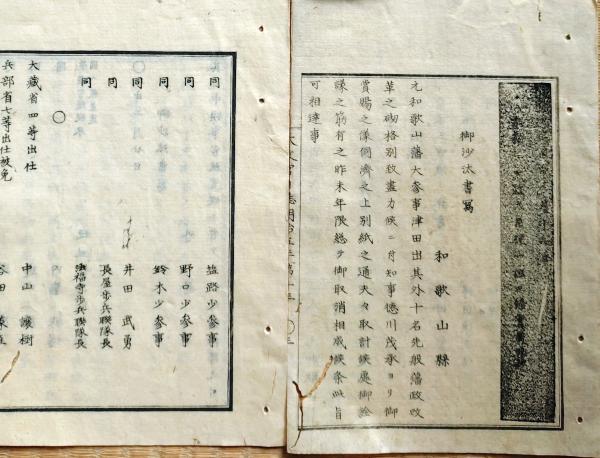 御沙汰書寫
和歌山縣
元和歌山藩大參事津田出其外十名先般藩政改
革之砌格別致盡力候ニ付知事徳川茂承ヨリ御
賞賜之儀伺濟之上別紙之通夫々取計候處御詮
議之筋有之昨未年限總テ御取消相成候条此旨
可相達事
同 塩路少參事
同 野口少參事
同 鈴木少參事
同 井田武勇
同 長屋歩兵聯隊長
同 法福寺歩兵聯隊長
〇
大藏省四等出仕 中山讓樹
兵部省七等出仕被免